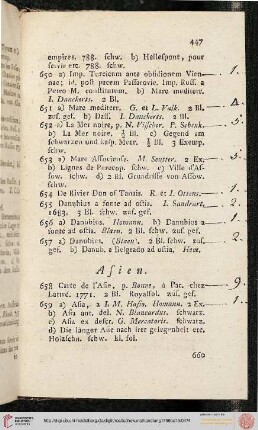 447
empires. 788. schw. b) Hellespont, pour
servir etc. 788. schw.
650 a) Imp. Turcicum ante obsidionem Vien- 1.
nae; id. post pacem Passarovic. Imp. Russ. a
Petro M. constitutum. b) Mare mediterr.
I. Danckerts. 2 Bl.
651 a) Mare mediterr. G. et I. Valk. 2 Bl.
zus. gef. b) Dass. I. Danckerts. 2 Bl.
652 a) La Mer noire, p. N. Visscher. P. Schenk. 5.
b) La Mer noire. ½ Bl. c) Gegend am
schwarzen und kasp. Meer. ½ Bl. 3 Exemp.
schw.
653 a) Mare Assoviense. M. Seutter. 2 Ex. 5.
b) Lignes de Perecop. schw. c) Ville d'As-
sow. schw. d) 2 Bl. Grundrisse von Assow.
schw.
654 De Rivier Don of Tanais. R. et I. Ottens. 1.
655 Danubius a fonte ad ostia. I. Sandrart. 2.
1683. 3 Bl. schw. zus. gef.
656 a) Danubius. Homann. b) Danubius a 1.
fonte ad ostia. Blaeu. 2 Bl. schw. zus. gef.
657 a) Danubius. (Blaeu.) 2 Bl. schw. zus. 2.
gef. b) Danub. a Belgrado ad ostia, Hom.
Asien.
658 Carte de l'Asie, p. Bonne, à Par. chez 9.
Lattré. 1771. 2 Bl. Royalfol. zus. gef.
659 a) Asia, a I. M. Hasio. Homann. 2 Ex. 1.
b) Asia aut. del. N. Blancardus. schwarz.
c) Asia ex descr. G. Mercatoris. schwarz.
d) Die länger Asie nach irer gelegenheit etc.
Holzschn. schw. kl. fol.
660